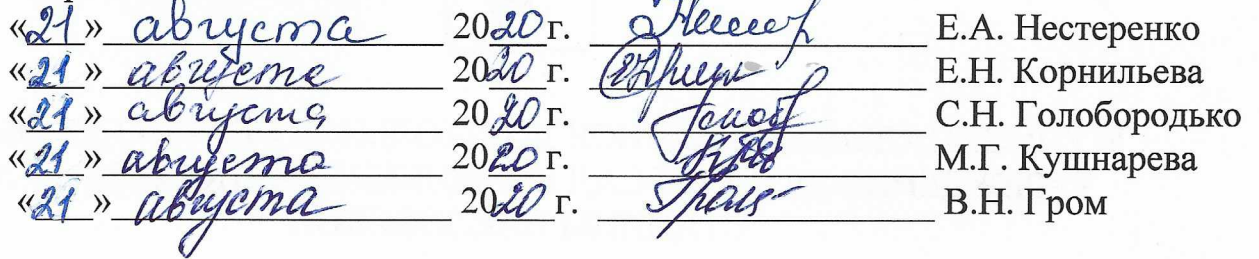 «21» августа 2020 г. Е.А. Нестеренко
«21» августа 2020 г. Е.Н. Корнильева
«21» августа 2020 г. С.Н. Голобородько
«21» августа 2020 г. М.Г. Кушнарева
«21» августа 2020 г. Гром В.Н. Гром